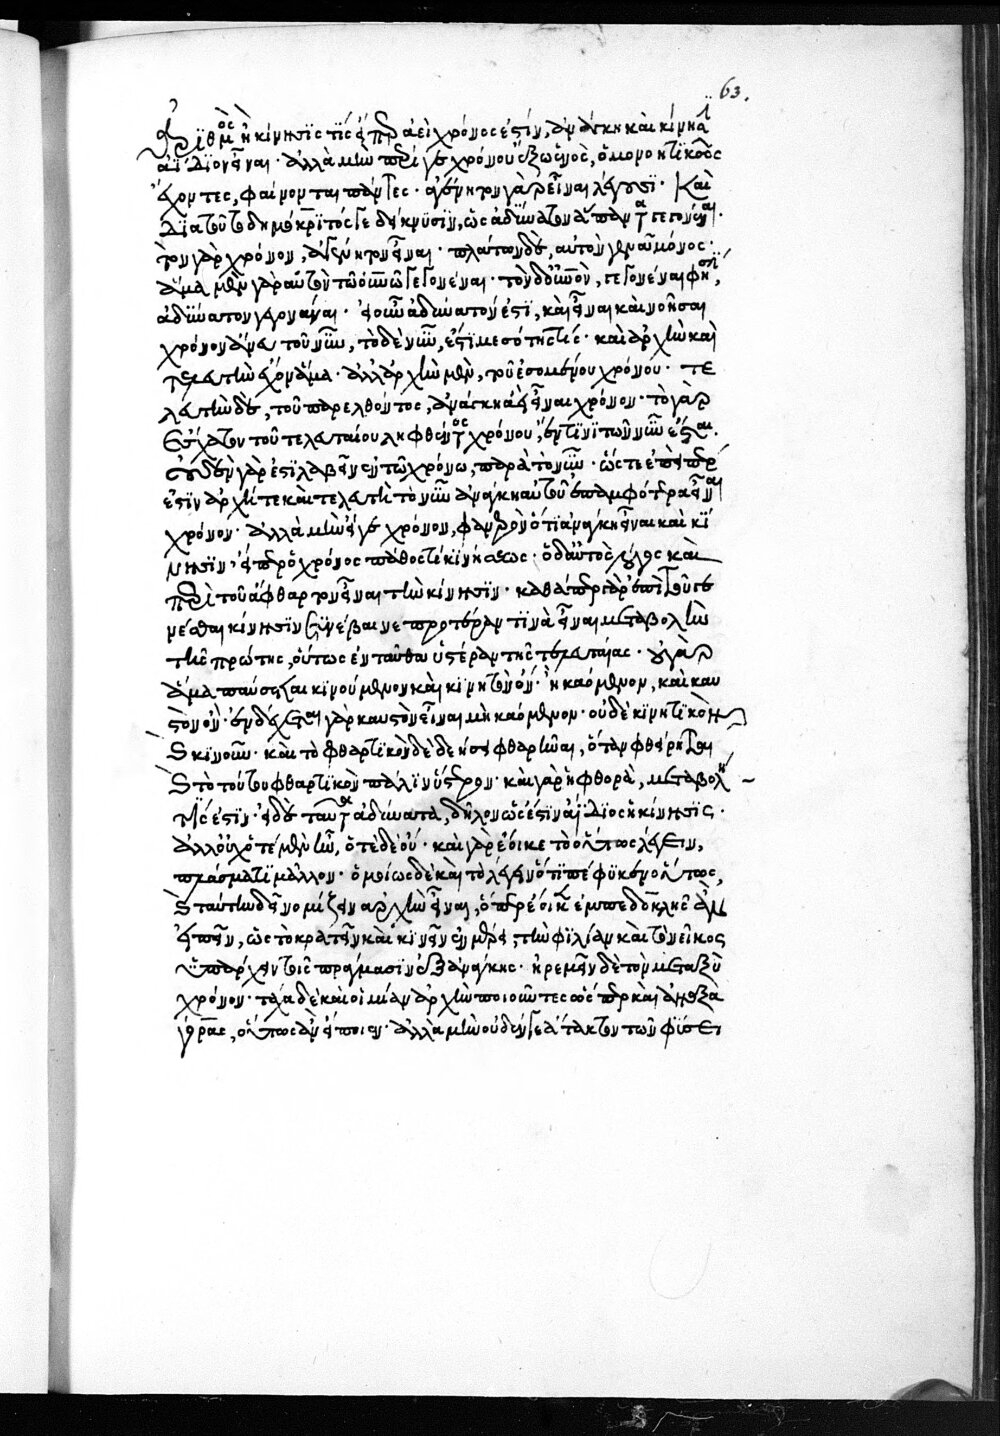 ἀριθμὸς ἢ κίνησίς τις εἴπερ ἀεὶ χρόνος ἐστίν, ἀνάγκη καὶ κίνησιν
ἀΐδιον εἶναι· ἀλλὰ μὴν περί γε χρόνου ἔξω ἑνὸς, ὁμονοητικῶς
ἔχοντες, φαίνονται πάντες· ἀγένητον γὰρ εἶναι λέγουσι· καὶ
διατοῦτο δημόκριτός γε δείκνυσιν, ὡς ἀδύνατον ἅπαντα γεγονέναι·
τὸν γὰρ χρόνον, ἀγένητον εἶναι· πλάτων δὲ, αὐτὸν γεννᾶ μόνος·
ἅμα μὲν γὰρ αὐτὸν τῶ οὐνῶ γεγονέναι· τὸν δ' οὐνὸν, γεγονέναι φησί,
ἀδύνατον
χρόνον ἄνευ τοῦ νῦν, τὸ δὲ νῦν, ἐστὶ μεσότης τις· καὶ ἀρχὴν καὶ
τελευτὴν ἔχον ἅμα· ἀλλ' ἀρχὴν μὲν, τοῦ ἐσομένου χρόνου· τε
λευτὴν δὲ, τοῦ παρελθόντος, ἀνάγκη ἀεὶ εἶναι χρόνον· τὸ γὰρ
ἔσχατον τοῦ τελευταίου ληφθέντος χρόνου, ἔν τινι τῶν νῦν ἔσται·
οὐδὲν γάρ ἐστι λαβεῖν ἐν τῶ χρόνω, παρὰ τὸ νῦν· ὥστε ἐπεὶ
ἐστὶν ἀρχή τε καὶ τελευτὴ τὸ νῦν ἀνάγκη αὐτοῦ ἐπ' ἀμφότερα εἶναι
χρόνον· ἀλλὰ μὴν εἴγε χρόνον, φανερὸν ὅτι ἀνάγκη εἶναι καὶ κί
νησιν· εἴπερ ὁ χρόνος πάθος τι κινήσεως· ὁ δ' αὐτὸς λόγος καὶ
περὶ τοῦ ἄφθαρτον εἶναι τὴν κίνησιν· καθάπερ γὰρ ἐπὶ τοῦ γε
νέσθαι κίνησιν συνέβαινε προτέραν τινὰ εἶναι μεταβολὴν
τῆς πρώτης, οὕτως ἐνταῦθα ὑστέραν τῆς τελευταίας· οὐ γὰρ
ἅμα παύεται κινούμενον καὶ κινητὸν ὄν· ἢ καόμενον, καὶ καυ
στὸν ὄν· ἐνδέχεται γὰρ καυστὸν εἶναι μὴ καόμενον· οὐδὲ κινητικὸν
καὶ κινοῦν· καὶ τὸ φθαρτικὸν δὲ δεήσει φθαρῆναι, ὅταν φθείρη
καὶ τὸ τούτου φθαρτικὸν πάλιν ὕστερον· καὶ γὰρ ἡ φθορὰ, μεταβολή
τίς ἐστιν· εἰ δὲ ταῦτα ἀδύνατα, δῆλον ὡς ἐστὶν ἀΐδιος ἡ κίνησις·
ἀλλ' οὐχ ὁτὲ μὲν ἦν, ὁτὲ δὲ οὔ· καὶ γὰρ ἔοικε τὸ οὕτως λέγειν,
πλάσματι μᾶλλον· ὁμοίως δὲ καὶ τὸ λέγειν ὅτι πέφυκεν οὕτως,
καὶ ταύτην δεῖ νομίζειν ἀρχὴν εἶναι, ὅπερ ἔοικεν ἐμπεδοκλῆς ἂν
εἰπεῖν, ὡς τὸ κρατεῖν καὶ κινεῖν ἐν μέρει, τὴν φιλίαν καὶ τὸ νεῖκος
ὑπάρχει τοῖς πράγμασιν ἐξ ἀνάγκης· ἠρεμεῖν δὲ τὸν μεταξὺ
χρόνον· τάχα δὲ καὶ οἱ μίαν ἀρχὴν ποιοῦντες ὥσπερ καὶ ἀναξα
γόρας, οὕτως ἂν εἴποιεν· ἀλλὰ μὴν οὐδέν γε ἄτακτον τῶν φύσει